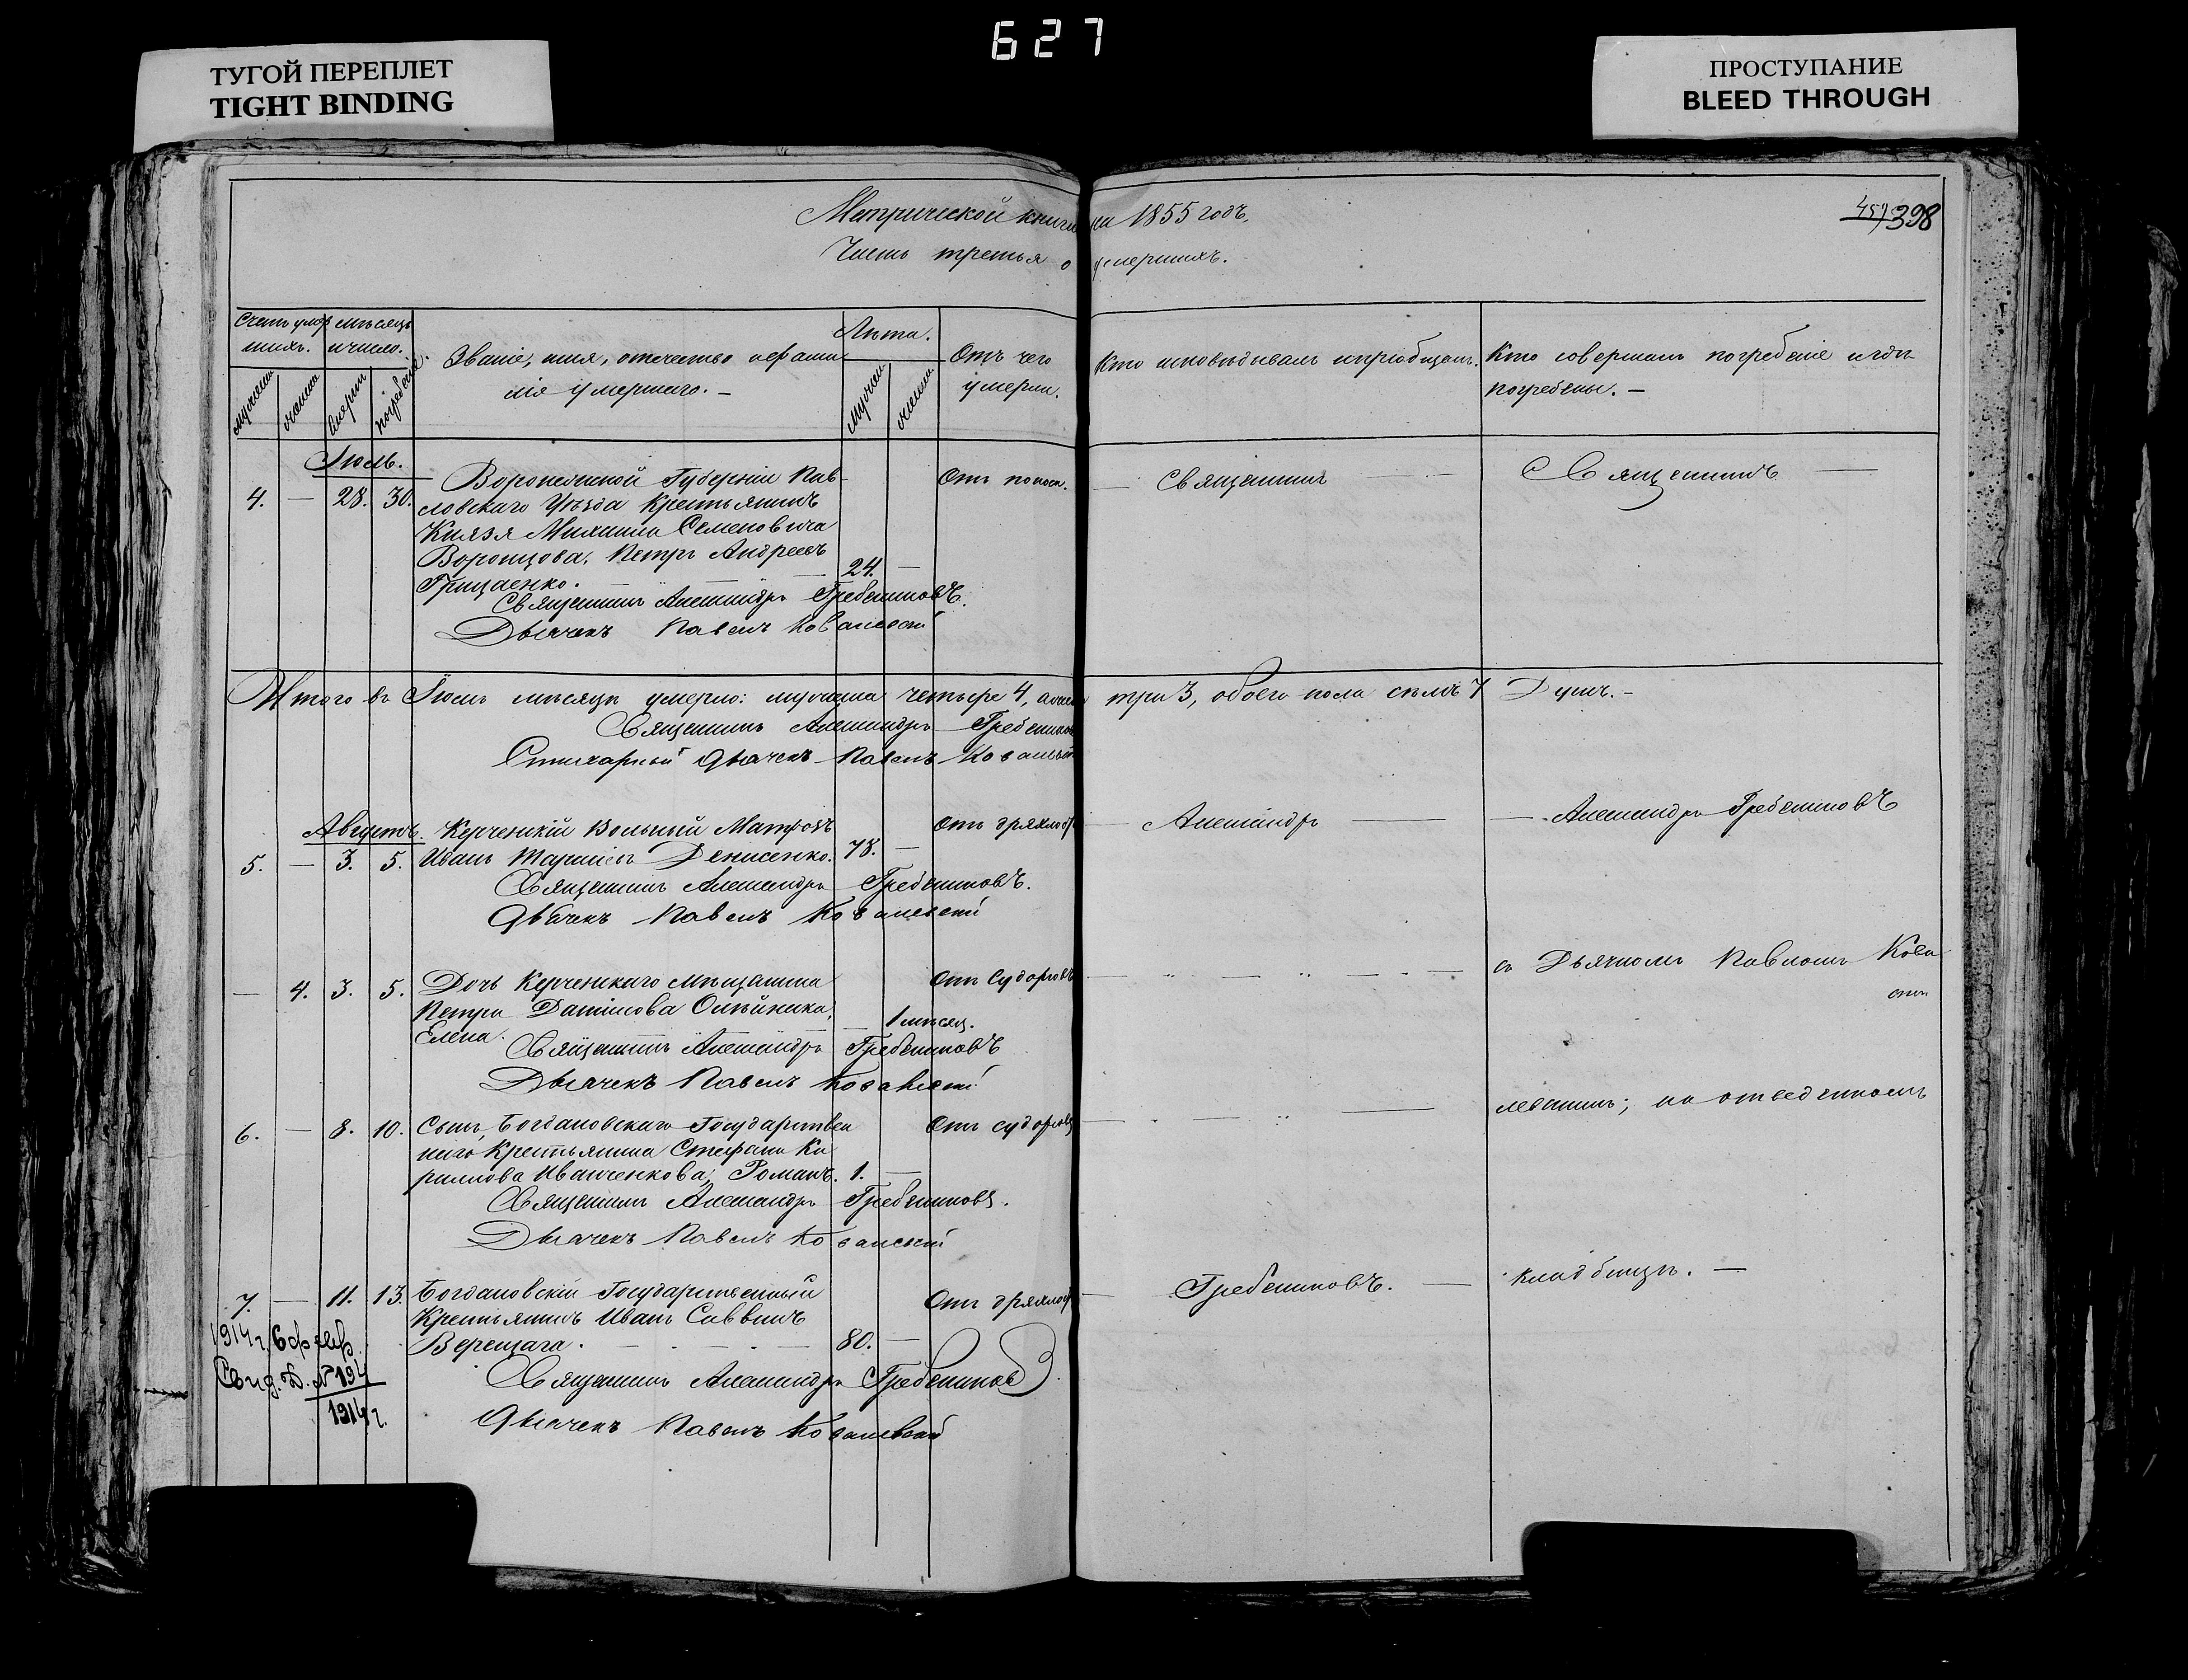 627
ТУГОЙ ПЕРЕПЛЕТ
TIGHT BINDING
ПРОСТУПАНИЕ
BLEED THROUGH
Метрической книги на 1855 годъ,
Часть третья о умершихъ.
459 398
Счетъ умер
шихъ.
мѣсяцъ
и число.
мужеска
женска
смерти
погребенія.
Званіе, имя, отечество и фами
лія умершаго. —
Лѣта.
мужеск
женска
Отъ чего
умерли.
Кто исповѣдывалъ и пріобщалъ.
Кто совершалъ погребеніе и гдѣ
погребены. —
Іюль.
4. — 28. 30. Воронежской Губерніи Пав
ловскаго Уѣзда Крестьянинъ
Князя Михаила Семеновича
Воронцова, Петръ Андреевъ
Грицаенко. — 24. —
Отъ поноса. — Священникъ — Священникъ —
Священникъ Александръ Гребенниковъ.
Дьячекъ Павелъ Ковалевскій
Итого въ Іюлѣ мѣсяцѣ умерло: мужеска четыре 4, а женска три 3, обоего пола семь 7 Душъ. —
Священникъ Александръ Гребенниковъ
Стихарный Дьячекъ Павелъ Ковалевскій
Августъ.
5. — 3. 5. Керченскій Вольный Матрозъ
Иванъ Денисенко. 78. —
Отъ дряхлос — Александръ — Александръ Гребенниковъ
Священникъ Александръ Гребенниковъ.
Дьячекъ Павелъ Ковалевскій
— 4. 3. 5. Дочь Керченскаго Мѣщанина
Петра Данилова Олѣйника,
Елена. — 1 мѣсяц.
Отъ Судорговъ — съ Дьячкомъ Павломъ Кова
Священникъ Александръ Гребенниковъ
Дьячекъ Павелъ Ковалевскій
6. — 8. 10. Сынъ, Богдановскаго Государствен
наго Крестьянина Стефана Ки
рилова Иванченкова, Романъ. 1. —
Отъ судоргов — левскимъ; на отведенномъ
Священникъ Александръ Гребенниковъ.
Дьячекъ Павелъ Ковалевскій
7. — 11. 13. Богдановскій Государственный
Крестьянинъ Иванъ Саввинъ
Верещага. — 80. —
Отъ дряхлос — Гребенниковъ. — кладбищѣ. —
Священникъ Александръ Гребенниковъ.
Дьячекъ Павелъ Ковалевскій
1914 г. 6 февр.
Свид. Д. № 194
1914 г.